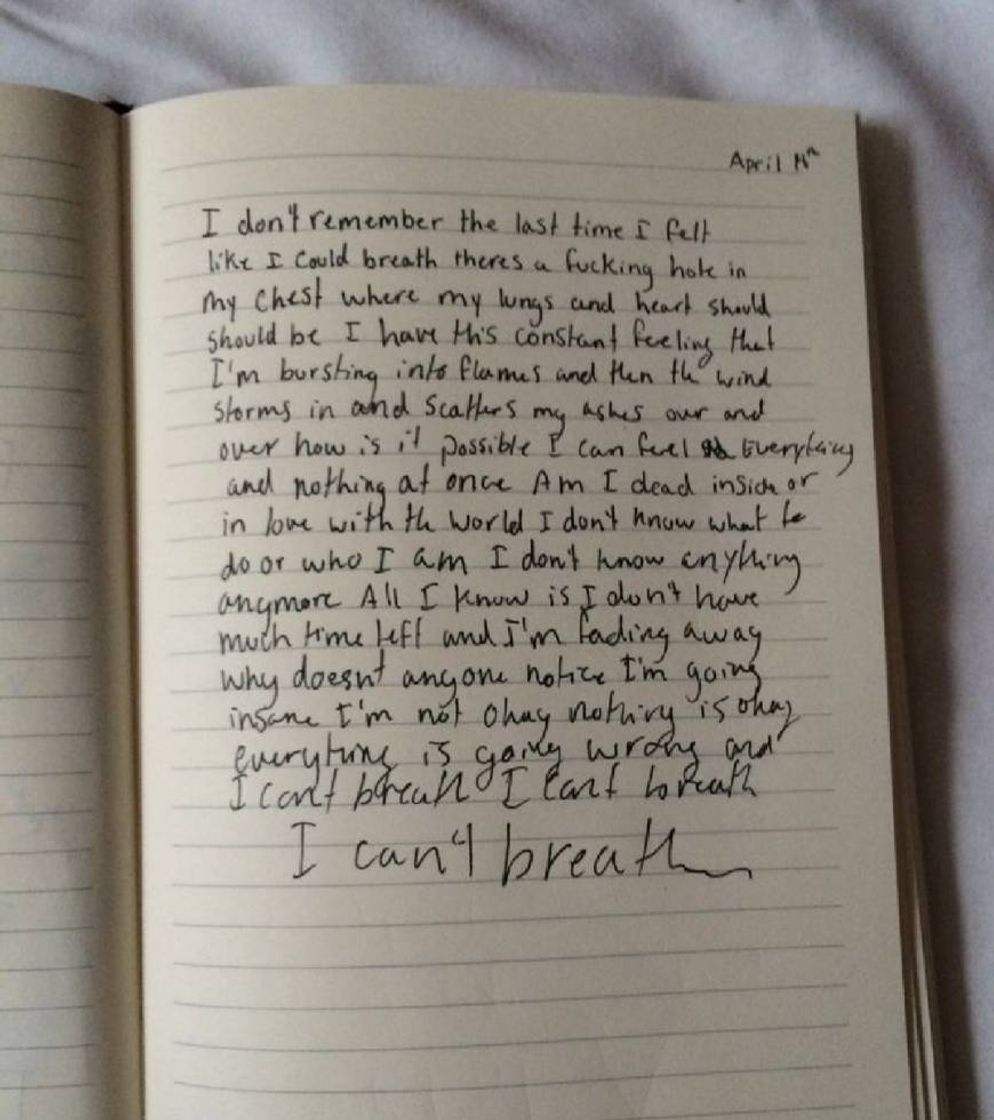 April
I don't remember the last time I felt
like I could breath theres a fucking hole in
my chest where my lungs and heart should
should be I have this constant feeling that
I'm bursting into flames and then the wind
storms in and scatters my ashes over and
over how is it possible I can feel Everything
and nothing at once Am I dead inside or
in love with the world I don't know what to
do or who I am I don't know anything
anymore All I know is I don't have
much time left and I'm fading away
why doesnt anyone notice I'm going
insane I'm not okay nothing is okay
everything is going wrong and
I can't breath I can't breath
I can't breath